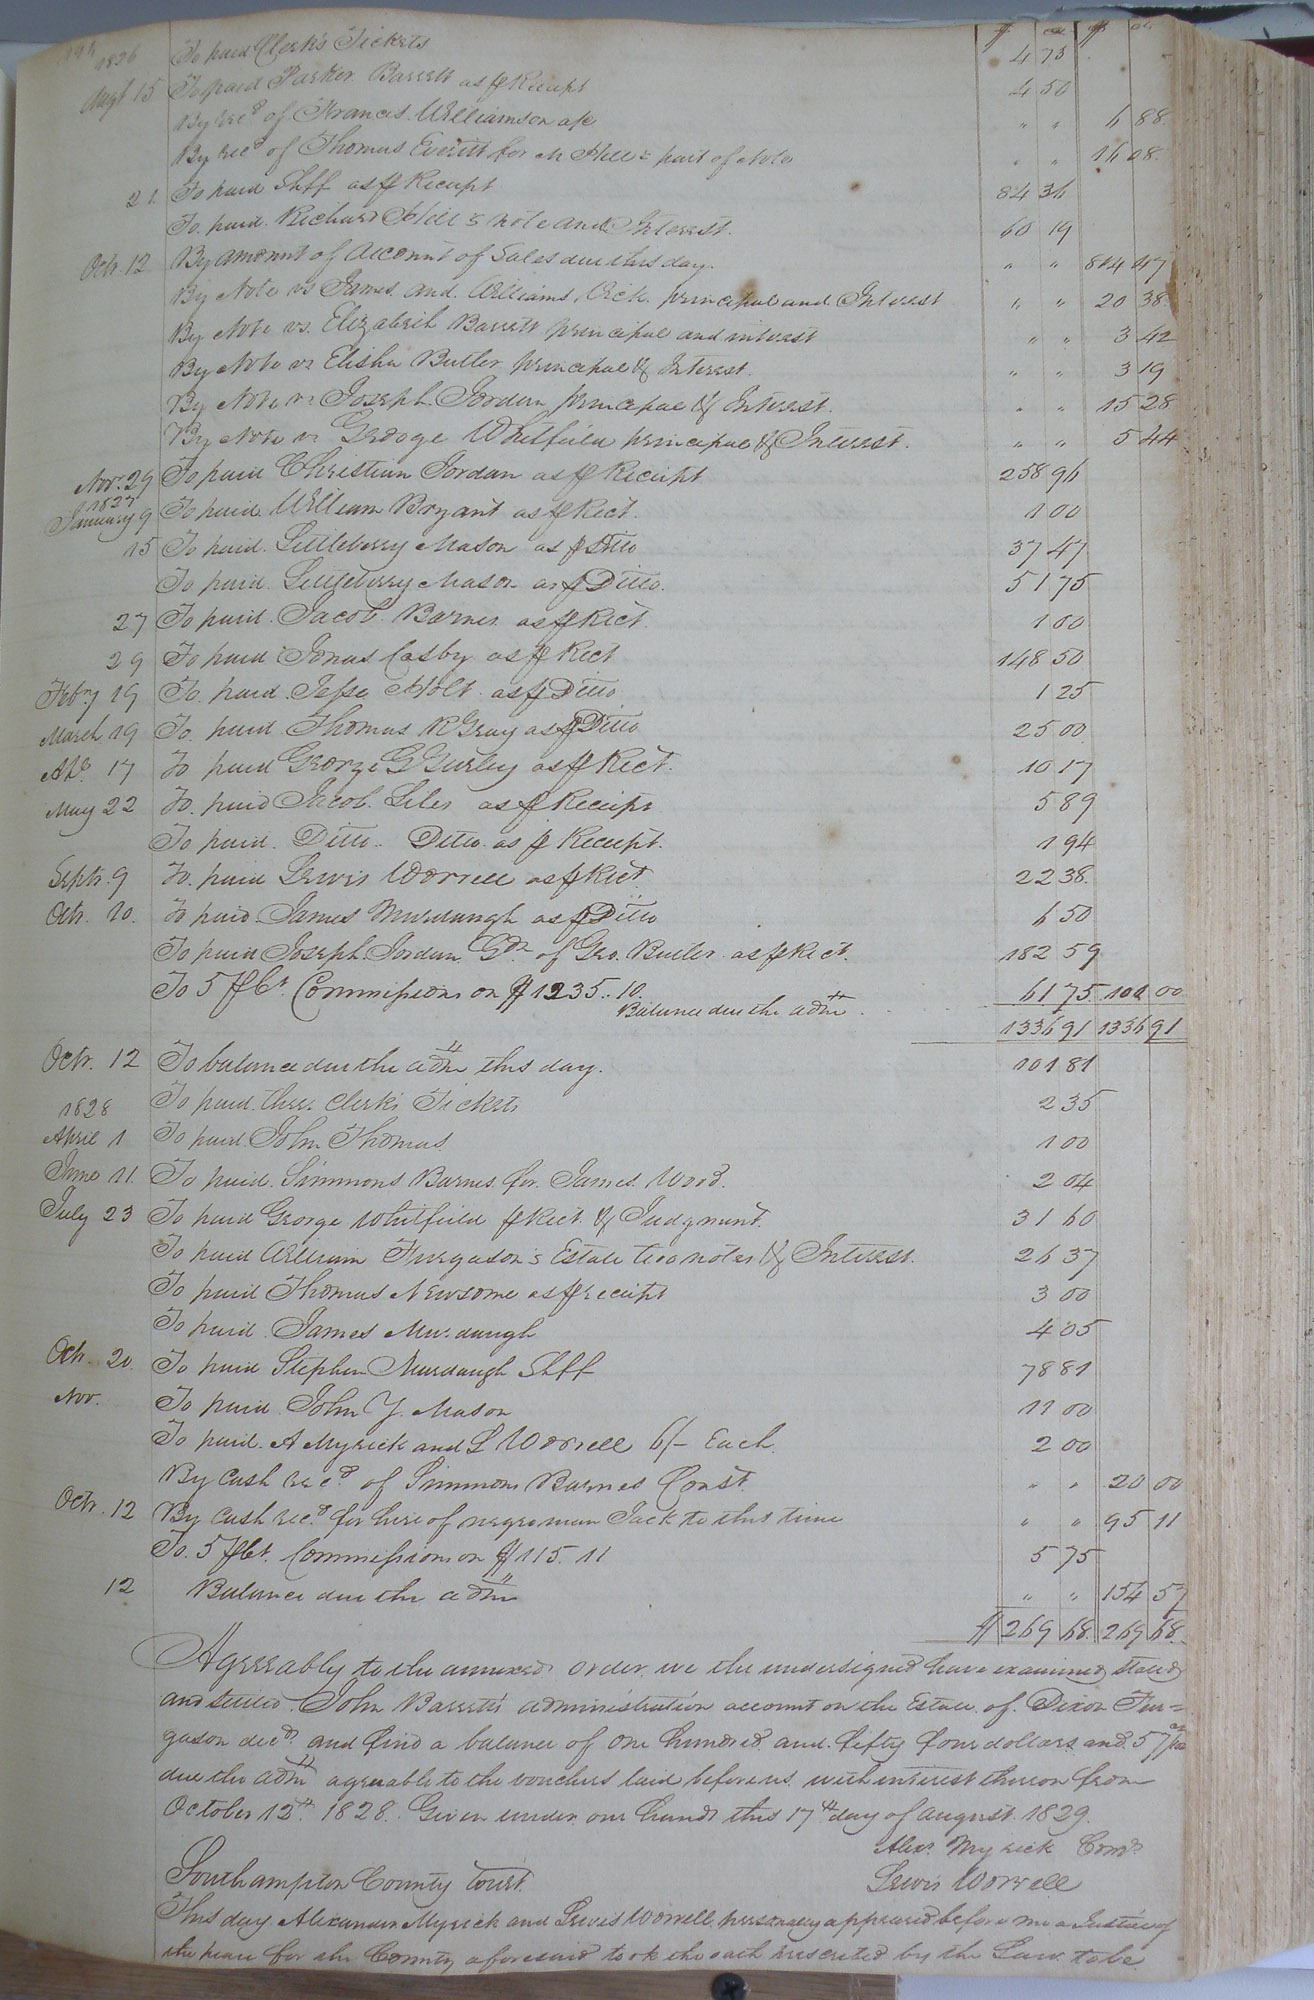 $ cts $ cts
1826 To paid Clerk's Tickets 4 75
Augt 15 To paid Parker Barrett as pr Receipt 4 50
By recd of Francis Williamson a/c " " 6 88
By recd of Thomas Everitt for M Hill's part of Note " " 16 08
21 To paid Shff as pr Receipt 84 36
To paid Richard Hill's note and Interest. 60 19
Octr. 12 By amount of Account of Sales due this day. " " 47
By Note vs James and Williams Vick principal and Interest " " 20 38
By Note vs. Elizabeth Barrett principal and interest " " 3 42
By Note vs Elisha Butler principal & Interest. " " 3 19
By Note vs Joseph Jordan principal & Interest. " " 15 28
By Note vs Geroge Whitfield principal & Interest. " " 5 44
Novr. 29 To paid Christian Jordan as pr Receipt 258 96
1827
January 9 To paid William Bryant as pr Rect. 1 00
15 To paid Littleberry Mason as pr Ditto 37 47
To paid Littleberry Mason as pr Ditto. 51 75
27 To paid Jacob Barnes as pr Rect. 1 00
29 To paid Jonas Casby as pr Rect 148 50
Febry 19 To paid Jesse Holt as pr Ditto 1 25
March 19 To paid Thomas R Gray as pr Ditto 250 0
Apl. 17 To paid George G Gurley as pr Rect. 10 17
May 22 To paid Jacob Liles as pr Receipt 5 89
To paid Ditto Ditto as pr Receipt. 1 94
Septr. 9 To paid Lewis Worrell as pr Rect 22 38
Octr. 10. To paid James Murdaugh as pr Ditto 6 50
To paid Joseph Jordan Gdn of Geo. Butler as pr Rect. 182 59
To 5 prCt. Commissions on $1235..10. 61 75
Balance due the admr 00
1336 91 1336 91
Octr. 12 To balance due the admr this day. 101 81
1828 To paid three Clerks Tickets 2 35
April 1 To paid John Thomas 1 00
June 11. To paid Simmons Barnes for James Wood. 2 04
July 23 To paid George Whitfield pr Rect & Judgment. 31 60
To paid William Furgason's Estate two notes & Interest. 26 37
To paid Thomas Newsome as pr receipt 3 00
To paid James Murdaugh 4 05
Octr. 20. To paid Stephen Murdaugh Shff 78 81
Nov. To paid John Y. Mason 11 00
To paid A Myrick and L Worrell 6/- Each. 2 00
By Cash recd. of Simmons Barnes Const. " " 20 00
Octr. 12 By Cash recd. for hire of negro man Jack to this time " " 95 11
To. 5 prCt. Commissions on $115.11 5 75
12 Balance due the admr " " 154 57
$ 269 68. 269 68.
Agreeably to the annexed order we the undersigned have examined stated
and settled John Barrett's administration account on the Estate of Dixon Fur=
gason decd. and find a balance of One hundred and fifty four dollars and 57/100
due the admr agreeable to the vouchers laid before us with interest thereon from
October 12th 1828. Given under our hands this 17th day of august 1829.
Alexr. Myrick Comr.
Lewis Worrell
Southampton County Court.
This day Alexander Myrick and Lewis Worrell personally appeared before me a Justice of
the peace for the County aforesaid took the oath prescribed by the Law to be